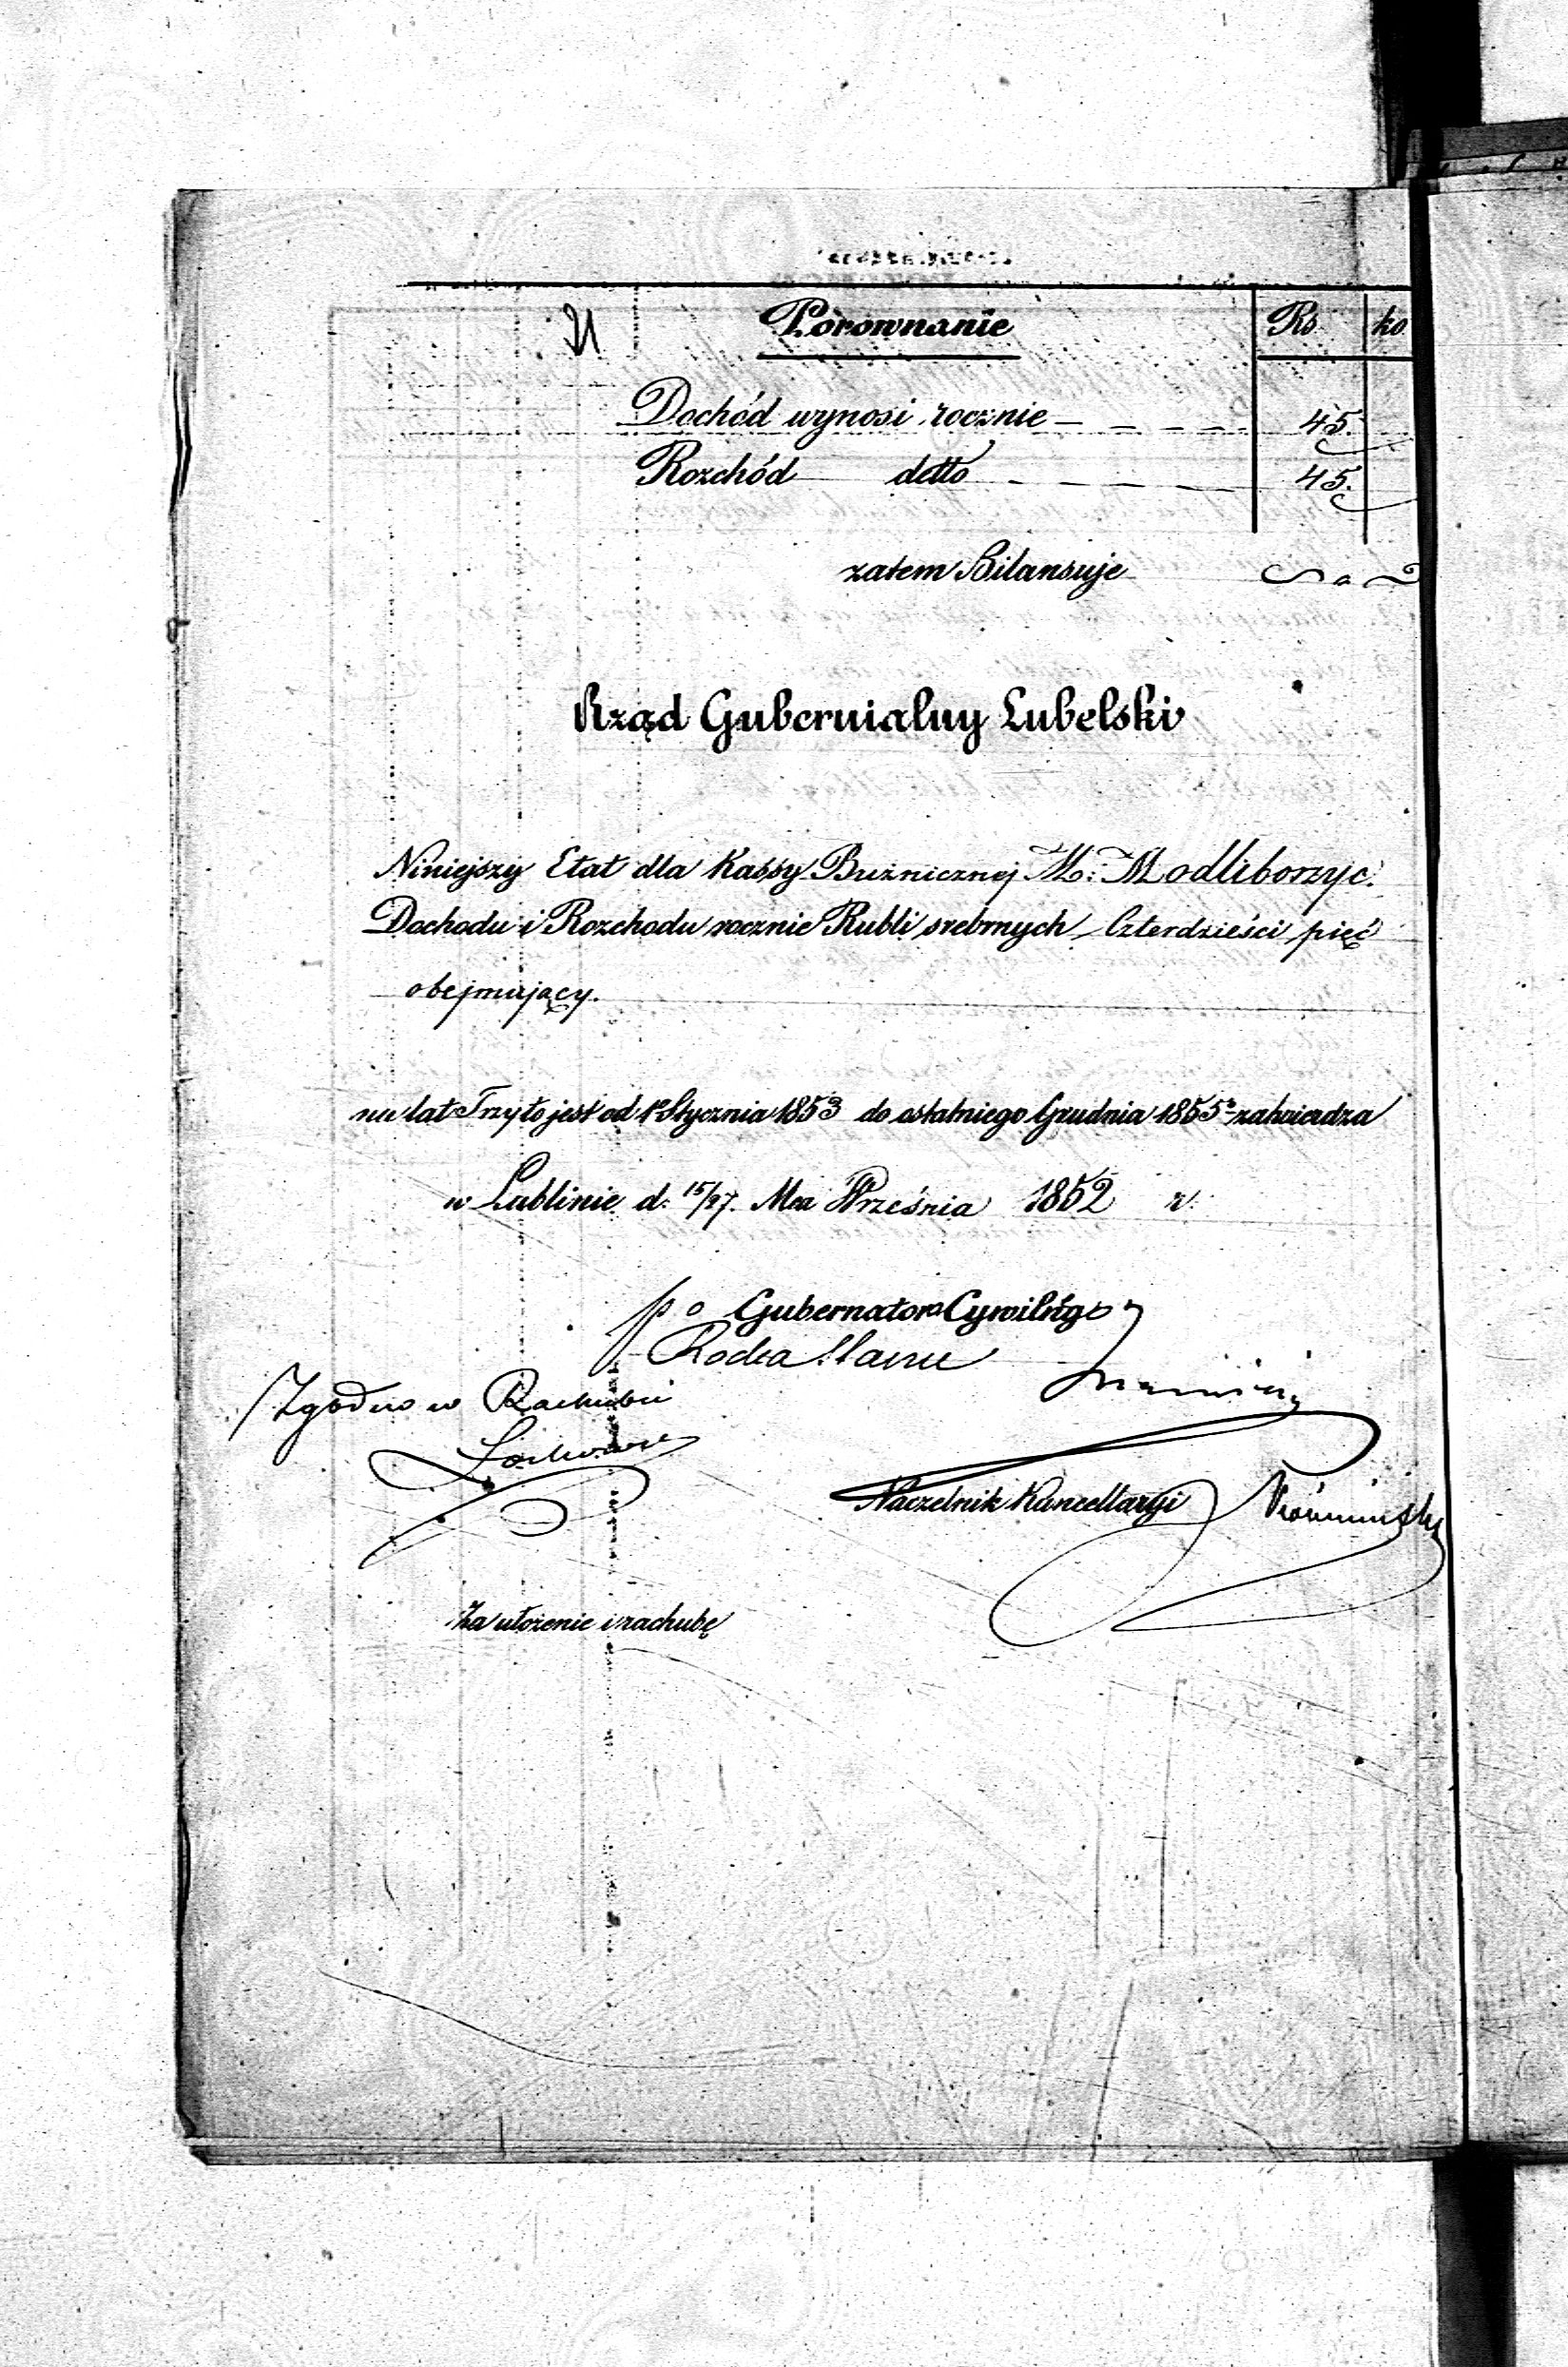 Porównanie Rs ko
Dochód wynosi rocznie — — — — 45.
Rozchód detto — — — — 45.
zatem Bilansuje
Rząd Gubernialny Lubelski
Niniejszy Etat dla Kassy Bużnicznej M: Modliborzyc.
Dochodu i Rozchodu rocznie Rubli srebrnych Czterdzieści pięć
obejmujący.
na lat Trzy to jest od 1o Stycznia 1853 do ostatniego Grudnia 1855 zatwierdza
w Lublinie d: 15/27. Mca Września 1852 r:
p o Gubernatora Cywilngo
Radca
Zgodno w Rachubie
Naczelnik Kancellaryi
Za ułożenie i rachubę